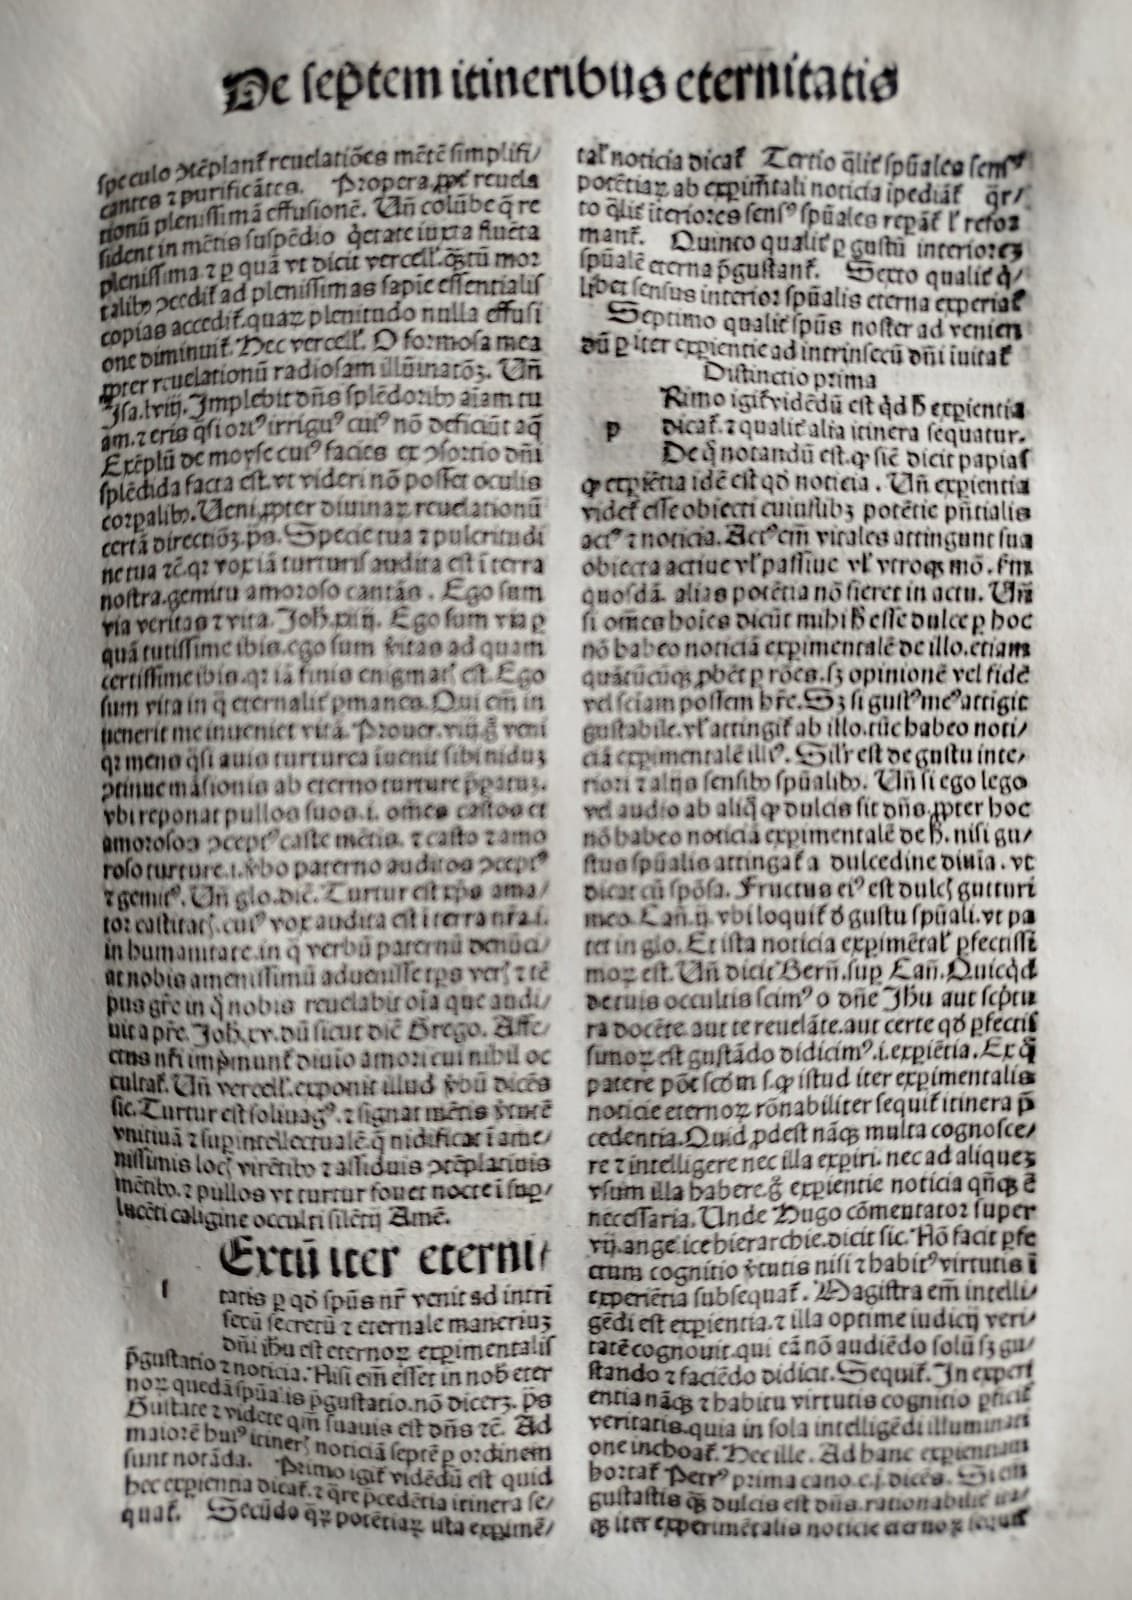 De septem itineribus eternitatis
speculo ↄtēplant̉ reuelatiōes mētē simplifi/
cantes ⁊ purificātes. Propera ꝓpt̉ reuela
tionū plenissimā effusionē. Uñ colūbe q̄ re
sident in mētis suspēdio q̉etate iuxta fluēta
plenissima ⁊ ꝑ quā vt dicit vercel̉. qͣꝫtū mor
talibꝰ ↄcedit̉ ad plenissimas sapiē essentialis
copias accedit̉. quaꝝ plenitudo nulla effusi
one diminuit̉. Hec vercel̉. O formosa mea
ꝓpter reuelationū radiosam illūinatōꝫ. Uñ
Isa. lviij. Implebit dn̄s splēdoribꝰ aīam tu
am. ⁊ eris q̉si ortꝰ irriguꝰ cuiꝰ nō deficiūt aq̄
Exēplū de moyse cuiꝰ facies ex ↄsortio dn̄i
splēdida facta est. vt videri nō posset oculis
corpalibꝰ. Ueni ꝓpter diuinaꝝ reuelationū
certā directiōꝫ. pṡ. Specie tua ⁊ pulcritudi
ne tua ⁊c̄. qꝛ vox iā turturis audita est ī terra
nostra. gemitu amoroso cantās. Ego sum
via veritas ⁊ vita. Joh̄. xiiij. Ego sum via ꝑ
quā tutissime ibis. ego sum v̉itas ad quam
certissime ibis. qꝛ iā finis enigmat̉ est. Ego
sum vita in q̄ eternalit̉ ꝑmanes. Qui em̄ in
uenerit me inueniet vitā. Prouer. viij. ḡ veni
qꝛ meno q̉si auis turturea iuenit sibi niduꝫ
ↄtinue māsionis ab eterno turture p̄ꝑatuꝫ.
vbi reponat pullos suos. i. om̄es castos et
amorosos ↄceptꝰ caste mētis. ⁊ casto ⁊ amo
roso turture. i. v̉bo paterno auditos ↄceptꝰ
⁊ gemitꝰ. Uñ glo. dic̄. Turtur est xp̄s ama/
tor castitat̉. cuiꝰ vox audita est ī terra nr̄a. i.
in humanitate. in q̄ verbū paternū denūci/
at nobis amenissimū aduenisse tp̄s ver̉ ⁊ tē
pus gr̄e in q̉ nobis reuelabit oīa que audi/
uit a pr̄e. Joh̄. xv. dū sicut dic̄ Grego. Affe/
ctus nr̄i imp̉munt̉ diuīo amori cui nihil oc
cultat̉. Uñ vercel̉. exponit illud v̉bū dicēs
sic. Turtur est soliuagꝰ. ⁊ signat mētis v̉tutē
vnitiuā ⁊ suꝑintellectualē q̄ nidificat ī ame/
nissimis loc̉ virētibꝰ ⁊ assiduis ↄtēplatiuis
mētibꝰ. ⁊ pullos vt turtur fouet nocte ī suꝑ/
lucēti caligine occulti silētij Amē.
Extū iter eterni/
s
tatis ꝑ qd̉ sp̄us nr̄ venit ad intri
secū secretū ⁊ eternale maneriuꝫ
dn̄i ihū est eternoꝝ exꝑimentalis
p̄gustatio ⁊ noticia. Nisi em̄ esset in nob̄ eter
noꝝ quedā sp̄ualis p̄gustatio. nō dicerꝫ. pṡ
Gustate ⁊ videte qm̄ suauis est dn̄s ⁊c̄. Ad
maiorē huiꝰ itiner̉ noticiā septē ꝑ ordinem
sunt notāda. Primo igit̉ vidēdū est quid
hec exꝑientia dicat̉. ⁊ q̉re p̄cedētia itinera se/
quat̉. Secūdo qͣꝝ potētiaꝝ ista exꝑimē/
tal̉ noticia dicat̉ Tertio q̄lit̉ sp̄uales sensꝰ
potētiaꝝ ab exꝑim̄tali noticia īpediāt̉ q̄r/
to q̄lit̉ īteriores sensꝰ sp̄uales repāt̉ l̉ refor
mant̉. Quinto qualit̉ ꝑ gustū interioreꝫ
sp̄ualē eterna p̄gustant̉. Sexto qualit̉ q̉/
libet sensus interior sp̄ualis eterna experiat̉
Septimo qualit̉ sp̄us noster ad venien
dū ꝑ iter exꝑientie ad intrinsecū dn̄i iuuat̉
Distinctio prima
Rimo igit̉ vidēdū est q̉d h̄ exꝑientia
p
dicat̉. ⁊ qualit̉ alia itinera sequatur.
De q̉ notandū est. ꝙ sic̄ dicit papias
ꝙ exꝑiētia idē est qd̉ noticia. Uñ exꝑientia
videt̉ esse obiecti cuiuslibꝫ potētie pn̄tialis
actꝰ ⁊ noticia. Actꝰ em̄ vitales attingunt sua
obiecta actiue vl̉ passiue vl̉ vtroqꝫ mō. fm
quosdā. alias potētia nō fieret in actu. Uñ
si om̄es hoīes dicūt mihi h̄ esse dulce ꝑ hoc
nō habeo noticiā exꝑimentalē de illo. etiam
quātūcūqꝫ ꝓbēt ꝑ rōes. sꝫ opinionē vel fidē
vel sciam possem hr̄e. Sꝫ si gustꝰ meꝰ attigit
gustabile. vl̉ attingit̉ ab illo. tūc habeo noti/
ciā exꝑimentalē illiꝰ. Sil̉r est de gustu inte/
riori ⁊ alijs sensibꝰ sp̄ualibꝰ. Uñ si ego lego
vel audio ab aliq̉ ꝙ dulcis sit dn̄s. ꝓpter hoc
nō habeo noticiā exꝑimentalē de h̄. nisi gu/
stus sp̄ualis attingat̉ a dulcedine diuīa. vt
dicat cū spōsa. Fructus eiꝰ est dulc̉ gutturi
meo. Cañ. ij. vbi loquit̉ d̉ gustu sp̄uali. vt pa
tet in glo. Et ista noticia exꝑimētal̉ ꝑfectissi
moꝝ est. Uñ dicit Berñ. suꝑ Cañ. Quicq̉d
de tuis occultis scimꝰ o dn̄e Jhū aut scp̄tu
ra docēte. aut te reuelāte. aut certe qd̉ ꝑfectis
simoꝝ est gustādo didicimꝰ. i. exꝑiētia. Ex q̉
patere pōt scd̉m s. ꝙ istud iter exꝑimentalis
noticie eternoꝝ rōnabiliter sequit̉ itinera p̄
cedentia. Quid ꝓdest nāqꝫ multa cognosce/
re ⁊ intelligere nec illa exꝑiri. nec ad aliqueꝫ
vsum illa habere. ḡ exꝑientie noticia qn̄qꝫ ē
necessaria. Unde Hugo cōmentator super
vij. angelice hierarchie. dicit sic. Nō facit ꝑfe
ctum cognitio v̉tutis nisi ⁊ habitꝰ virtutis ī
experiētia subsequat̉. Magistra em̄ intelli/
gēdi est exꝑientia. ⁊ illa optime iudicij veri/
tatē cognouit. qui eā nō audiēdo solū sꝫ gu/
stando ⁊ faciēdo didicit. Sequit̉. In experi
entia nāqꝫ ⁊ habitu virtutis cognitio ꝑficit̉
veritatis. quia in sola intelligēdi illuminati
one inchoat̉. Hec ille. Ad hanc exꝑientiam
hortat̉ Petrꝰ prima cano. c. j. dicēs. Si tn̄
gustastis qͣꝫ dulcis est dn̄s. rationabilit̉ ita/
qꝫ iter experimētalis noticie eternoꝝ sequit̉